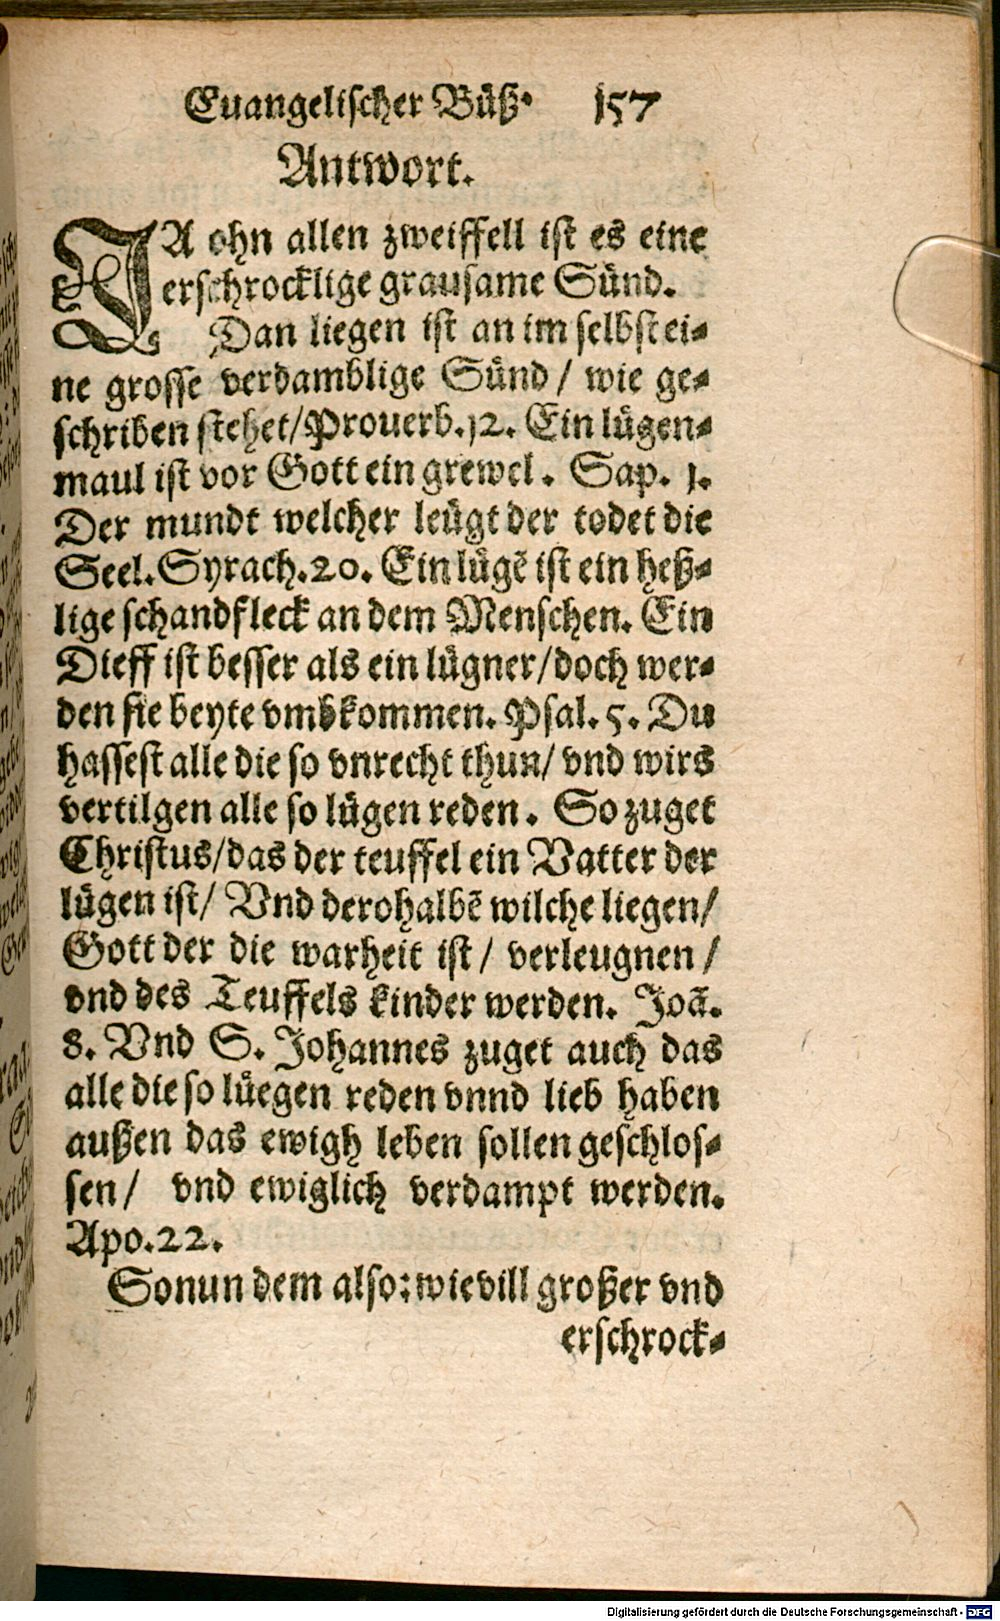 Euangelischer Büß. 157
Antwort.
JA ohn allen zweiffell ist es eine
erschrocklige grausame Sünd.
Dan liegen ist an im selbst ei-
ne grosse verdamblige Sünd/ wie ge-
schriben stehet/Prouerb.12. Ein lügen-
maul ist vor Gott ein grewel. Sap. 1.
Der mundt welcher leügt der todet die
Seel. Syrach.20. Ein lügẽ ist ein heß-
lige schandfleck an dem Menschen. Ein
Dieff ist besser als ein lügner/doch wer-
den sie beyte vmbkommen. Psal. 5. Du
hassest alle die so vnrecht thun/ vnd wirs
vertilgen alle so lügen reden. So zuget
Christus/das der teuffel ein Vatter der
lügen ist/ Vnd derohalbẽ wilche liegen/
Gott der die warheit ist/ verleugnen/
vnd des Teuffels kinder werden. Joã.
8. Vnd S. Johannes zuget auch das
alle die so lüegen reden vnnd lieb haben
außen das ewigh leben sollen geschlos-
sen/ vnd ewiglich verdampt werden.
Apo.22.
So nun dem also: wie vill großer vnd
erschrock-
Digitalisierung gefördert durch die Deutsche Forschungsgemeinschaft - DFG